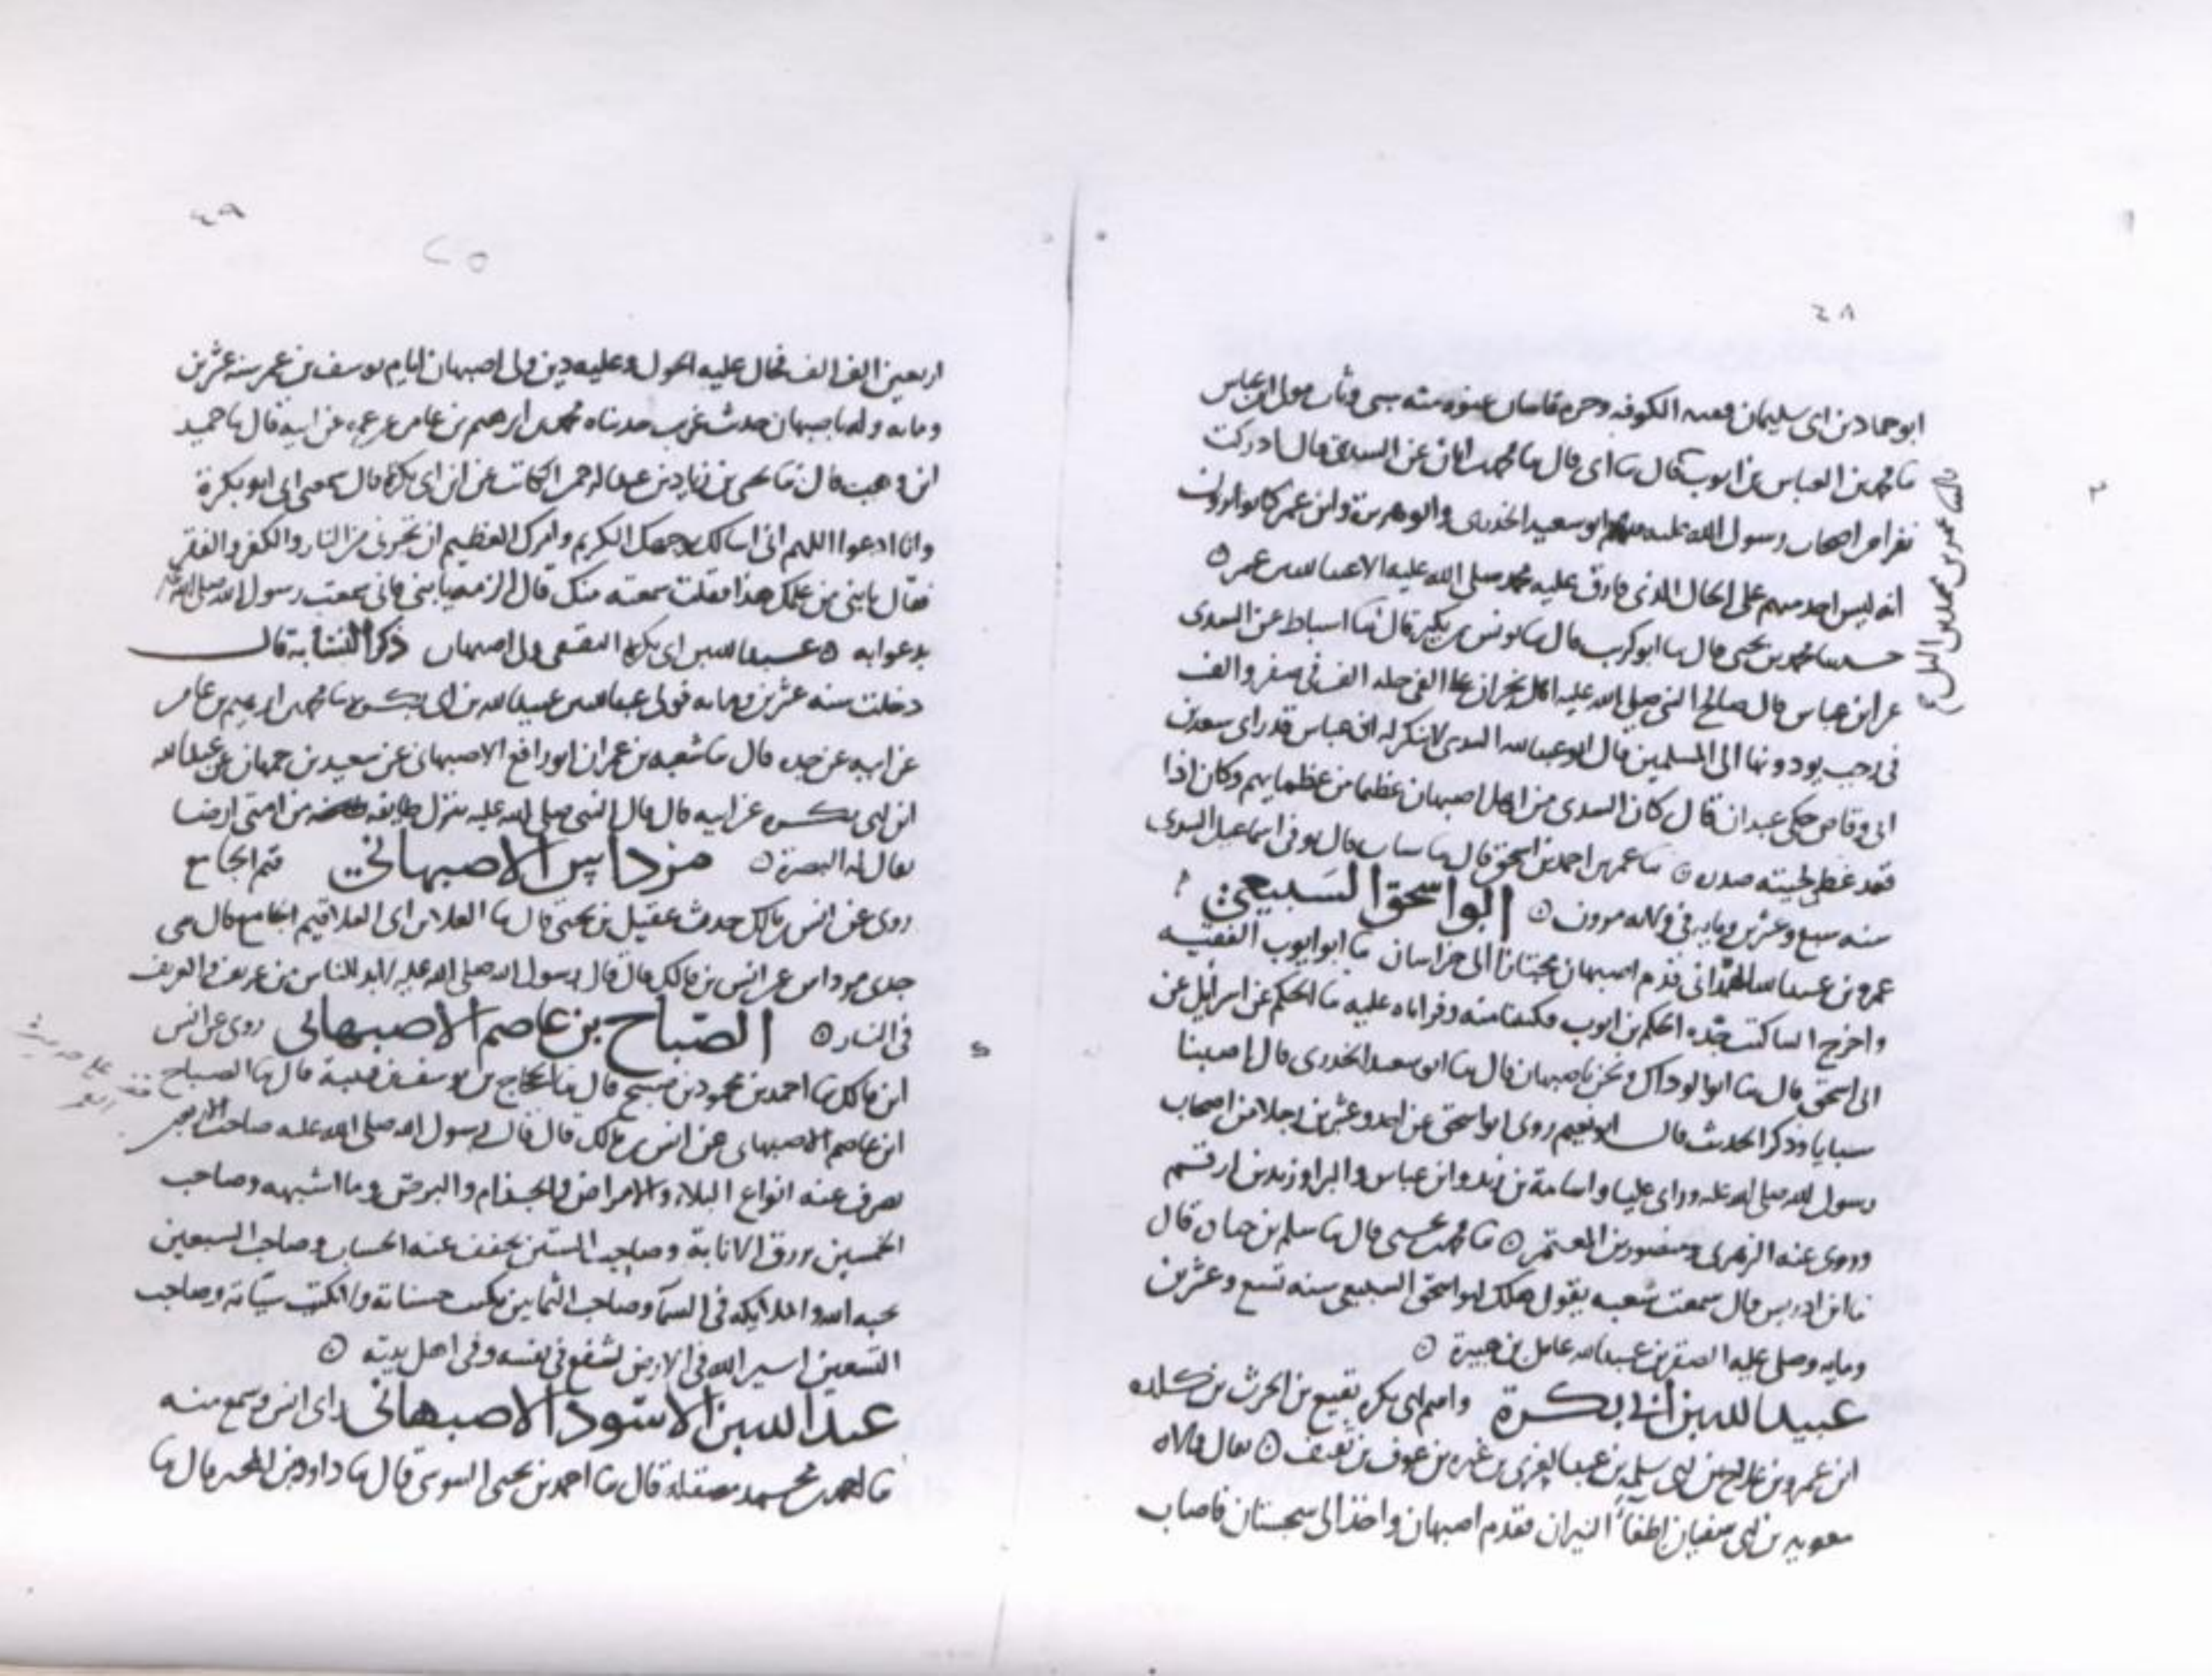 ٤٨
ابو حماد بن ابى سليمان فقيه الكوفه
ما محمد بن العباس بن ايوب قال ما ابى قال ما محمد عن السدى قال ادركت
نفرا من اصحاب رسول الله صلى الله عليه ابو سعيد الخدرى وابو هريرة وابن عمر كانوا يرون
انه ليس احد منهم على الحال الذى فارق عليه محمد صلى الله عليه الا عبد الله بن عمر
حدثنا محمد بن يحيى قال ما ابو كريب قال ما يونس بن بكير قال ما اسباط عن السدى
عن ابن عباس قال صالح النبى صلى الله عليه اهل نجران على الفى حله الف فى صفر والف
فى رجب يودونها الى المسلمين قال ابو عبد الله السدى لا ينكر له ابن عباس قد راى سعد بن
ابى وقاص حكى عبدان قال كان السدى من اهل اصبهان عظيما من عظمايهم وكان اذا
قعد غطى لحيته صدره ما عمر بن احمد بن اسحق قال ما قال توفى اسماعيل السدى
سنه سبع وعشرين ومايه فى ولايه مروان ابو اسحق السبيعى
عمرو بن عبد الله الهمدانى قدم اصبهان مجتازا الى خراسان ما ابو ايوب الفقيه
واخرج الينا كتب جده الحكم بن ايوب فكتبنا منه وقراناه عليه ما الحكم عن اسرايل عن
ابى اسحق قال ما ابو الوداك ونحن باصبهان قال ما ابو سعيد الخدرى قال اصبنا
سبايا وذكر الحديث قال ابو نعيم روى ابو اسحق عن احد وعشرين رجلا من اصحاب
رسول الله صلى الله عليه وراى عليا واسامة بن زيد وابن عباس والبرا وزيد بن ارقم
وروى عنه الزهرى ومنصور بن المعتمر ما محمد بن عيسى قال ما سلم بن جناده قال
ما ابن ادريس قال سمعت شعبه يقول هلك ابو اسحق السبيعى سنه تسع وعشرين
ومايه وصلى عليه الصقر بن عبد الله عامل بن هبيرة
عبيد الله بن ابى بكرة واسم ابى بكره نفيع بن الحرث بن كلده
ابن عمرو بن علاج بن ابى سلمه بن عبد العزى بن غيره بن عوف بن ثقيف يقال ولاه
معويه بن ابى سفيان اطفاء النيران فقدم اصبهان واخذ الى سجستان فاصاب
٤٩
٢٥
اربعين الف الف فحال عليه الحول وعليه دين ولى اصبهان ايام يوسف بن عمر سنه عشرين
ومايه وله باصبهان حديث غريب حدثناه محمد بن ابرهيم بن عامر عن عمه عن ابيه قال ما حميد
ابن وهب قال ما يحيى بن زياد بن عبد الرحمن الكاتب عن ابن ابى بكرة قال سمعنى ابى ابو بكرة
وانا ادعوا اللهم انى اسالك بوجهك الكريم وامرك العظيم ان تجرنى من النار والكفر والفقر
فقال يا بنى من علمك هذا فقلت سمعته منك قال الزمه يا بنى فانى سمعت رسول الله صلى الله عليه
يدعوا به عبد الله بن ابى بكرة الثقفى ولى اصبهان ذكر النشابة قال
دخلت سنه عشرين ومايه فولى عبد الله بن عبيد الله بن ابى بكره ما محمد بن ابرهيم بن عامر
عن ابيه عن جده قال ما شعبه بن عمران ابو رافع الاصبهانى عن سعيد بن جمهان عن عبد الله
ابن ابى بكره عن ابيه قال قال النبى صلى الله عليه ينزل طايفه من امتى ارضا
يقال لها البصرة مرداس الاصبهانى قيم الجامع
روى عن انس بن مالك حديث عقيل بن يحيى قال ما العلا بن ابى العلا قيم الجامع قال حدثنى
جدى مرداس عن انس بن مالك قال قال رسول الله صلى الله عليه لابد للناس من عريف والعريف
فى النار الصباح بن عاصم الاصبهانى روى عن انس
ابن مالك ما احمد بن محمود بن صبيح قال ما الحجاج بن يوسف بن قتيبة قال ما الصباح
ابن عاصم الاصبهانى عن انس بن مالك قال قال رسول الله صلى الله عليه صاحب الاربعين
يصرف عنه انواع البلاء والامراض والجذام والبرص وما اشبهه وصاحب
الخمسين يرزق الانابة وصاحب الستين يخفف عنه الحساب وصاحب السبعين
يحبه الله والملايكه فى السما وصاحب الثمانين تكتب حسناته ولا تكتب سيآته وصاحب
التسعين اسير الله فى الارض يشفع فى نفسه وفى اهل بيته
عبد الله بن الاسود الاصبهانى راى انس وسمع منه
ما احمد بن محمد مصقله قال ما احمد بن يحيى السوسى قال ما داود بن المحبر قال ما